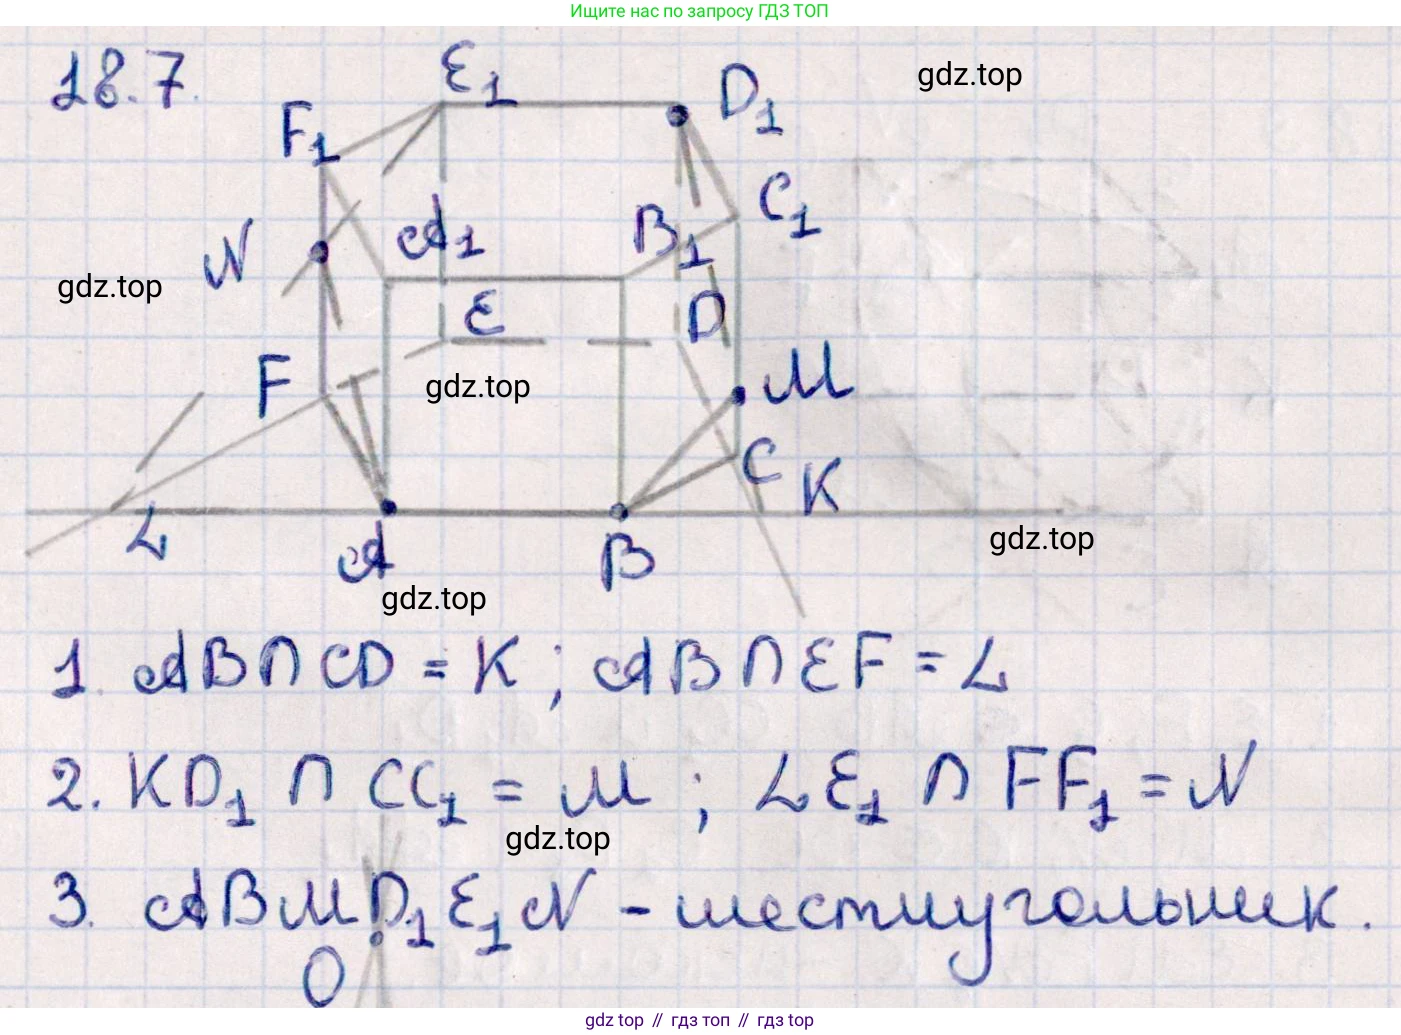 Ищите нас по запросу ГДЗ ТОП
18.7.
E₁
D₁
gdz.top
F₁
C₁
N
A₁
B₁
gdz.top
E
D
F
gdz.top
M
C
K
L
A
B
gdz.top
gdz.top
1. AB∩CD = K; AB∩EF = L
2. KD₁ ∩ CC₁ = M; LE₁ ∩ FF₁ = N
gdz.top
3. ABMD₁E₁N – шестиугольник.
O
gdz top // гдз топ // gdz top